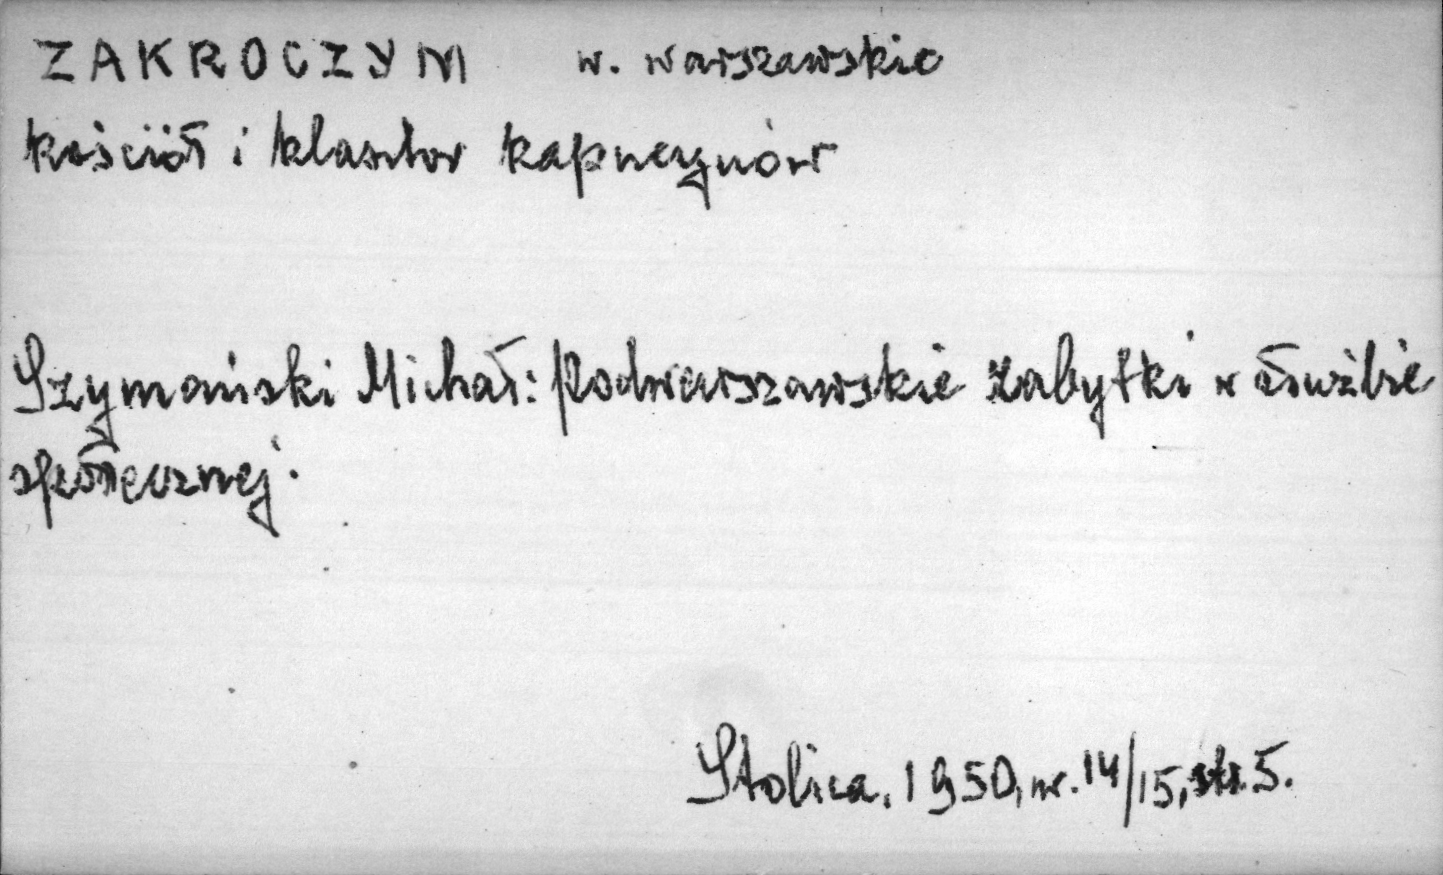 ZAKROCZYM w. warszawskie
Kościół i klasztor kapucynów
Szymański Michał: Podwarszawskie zabytki w służbie
społecznej.
Stolica, 1950, nr. 14/15, str. 5.